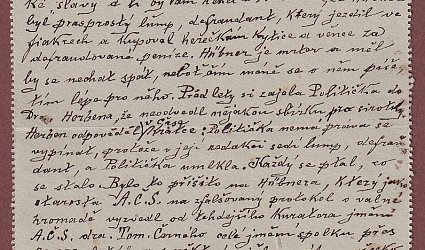 ké "slávy" a ti by vám řekli
byl prasprostý lump, defraudant, který jezdil ve
fiakrech a kupoval herečkám kytice a věnce za
defraudované peníze. Hübner je mrtev a měl
by se nechat spát, neboť čím méně se o něm píše
tím lépe pro něho. Před lety si zajela Politička do
Dra. Horbena, že neodvedl nějakou sbírku pro sirotky.
Horben odpověděl v Čase
krátce: Politička nemá práva se
vypínat, protože v její redakci sedí lump, defrau
dant, a Politička umlkla. Každý se ptal, co
se stalo. Bylo to přišito na Hübnera, který jako
starosta A.C.S. na zfalšovaný protokol o valné
hromadě vyzvedl od tehdejšího kurátora jmění
A.C.S. dra. Tom. Černého celé jmění spolku přes